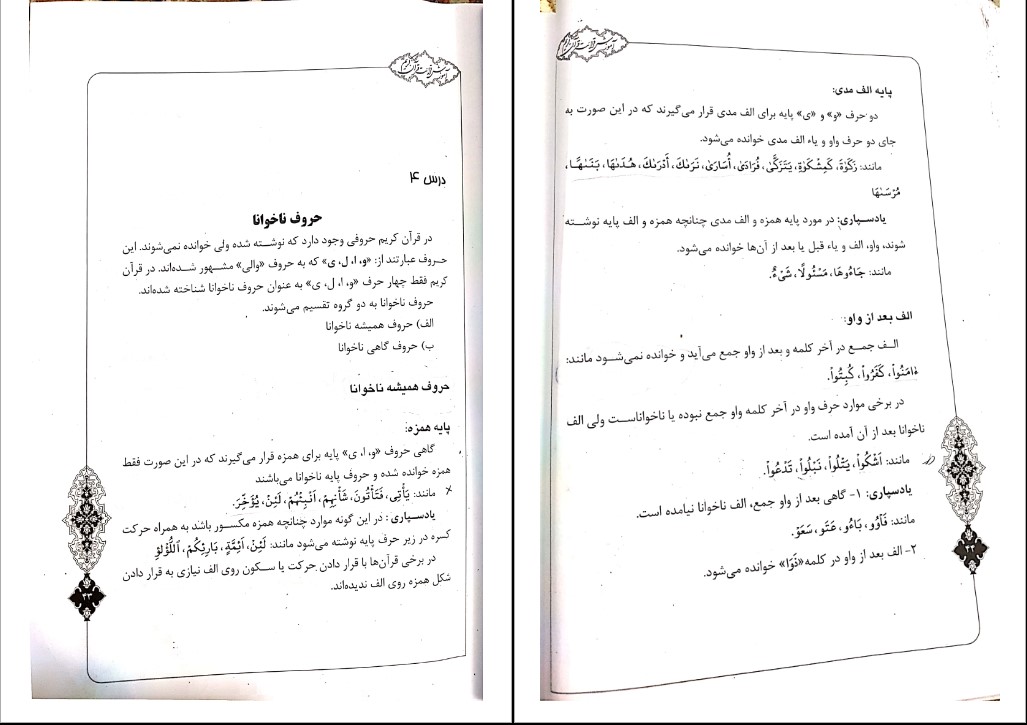 درس ۴
حروف ناخوانا
در قرآن کریم حروفی وجود دارد که نوشته شده ولی خوانده نمی‌شوند. این
حروف عبارتند از: «و، ا، ل، ی» که به حروف «والی» مشهور شده‌اند. در قرآن
کریم فقط چهار حرف «و، ا، ل، ی» به عنوان حروف ناخوانا شناخته شده‌اند.
حروف ناخوانا به دو گروه تقسیم می‌شوند.
الف) حروف همیشه ناخوانا
ب) حروف گاهی ناخوانا
حروف همیشه ناخوانا
پایه همزه:
گاهی حروف «و، ا، ی» پایه برای همزه قرار می‌گیرند که در این صورت فقط
همزه خوانده شده و حروف پایه ناخوانا می‌باشند
مانند: یَأْتِی، فَتَأْتُونَ، شَأْنِهِمْ، أَنْبِئْهُمْ، لَئِنْ، یُؤَخِّرَ.
یادسپاری: در این گونه موارد چنانچه همزه مکسور باشد به همراه حرکت
کسره در زیر حرف پایه نوشته می‌شود مانند: لَئِنْ، أَئِمَّةٍ، بَارِئِکُمْ، اللُّؤْلُؤِ
در برخی قرآن‌ها با قرار دادن حرکت یا سکون روی الف نیازی به قرار دادن
شکل همزه روی الف ندیده‌اند.
۲۳
پایه الف مدی:
دو حرف «و» و «ی» پایه برای الف مدی قرار می‌گیرند که در این صورت به
جای دو حرف واو و یاء الف مدی خوانده می‌شود.
مانند: زَکَوٰةَ، کَمِشْکَوٰةٍ، یَتَزَکَّىٰ، فُرَادَىٰ، أُسَارَىٰ، نَرَىٰكَ، أَدْرَىٰكَ، هُدَىٰهَا، بَنَىٰهَا،
مُرْسَىٰهَا
یادسپاری: در مورد پایه همزه و الف مدی چنانچه همزه و الف پایه نوشته
شوند، واو، الف و یاء قبل یا بعد از آن‌ها خوانده می‌شود.
مانند: جَاءُوهَا، مَسْئُولًا، شَیْءٌ.
الف بعد از واو:
الف جمع در آخر کلمه و بعد از واو جمع می‌آید و خوانده نمی‌شود مانند:
ءَامَنُواْ، کَفَرُواْ، کُبِتُواْ.
در برخی موارد حرف واو در آخر کلمه واو جمع نبوده یا ناخواناست ولی الف
ناخوانا بعد از آن آمده است.
مانند: أَشْکُواْ، یَتْلُواْ، نَبْلُواْ، تَدْعُواْ.
یادسپاری: ۱- گاهی بعد از واو جمع، الف ناخوانا نیامده است.
مانند: فَآؤُو، بَاءُو، عَتَوْ، سَعَوْ.
۲- الف بعد از واو در کلمه «ذَوَا» خوانده می‌شود.